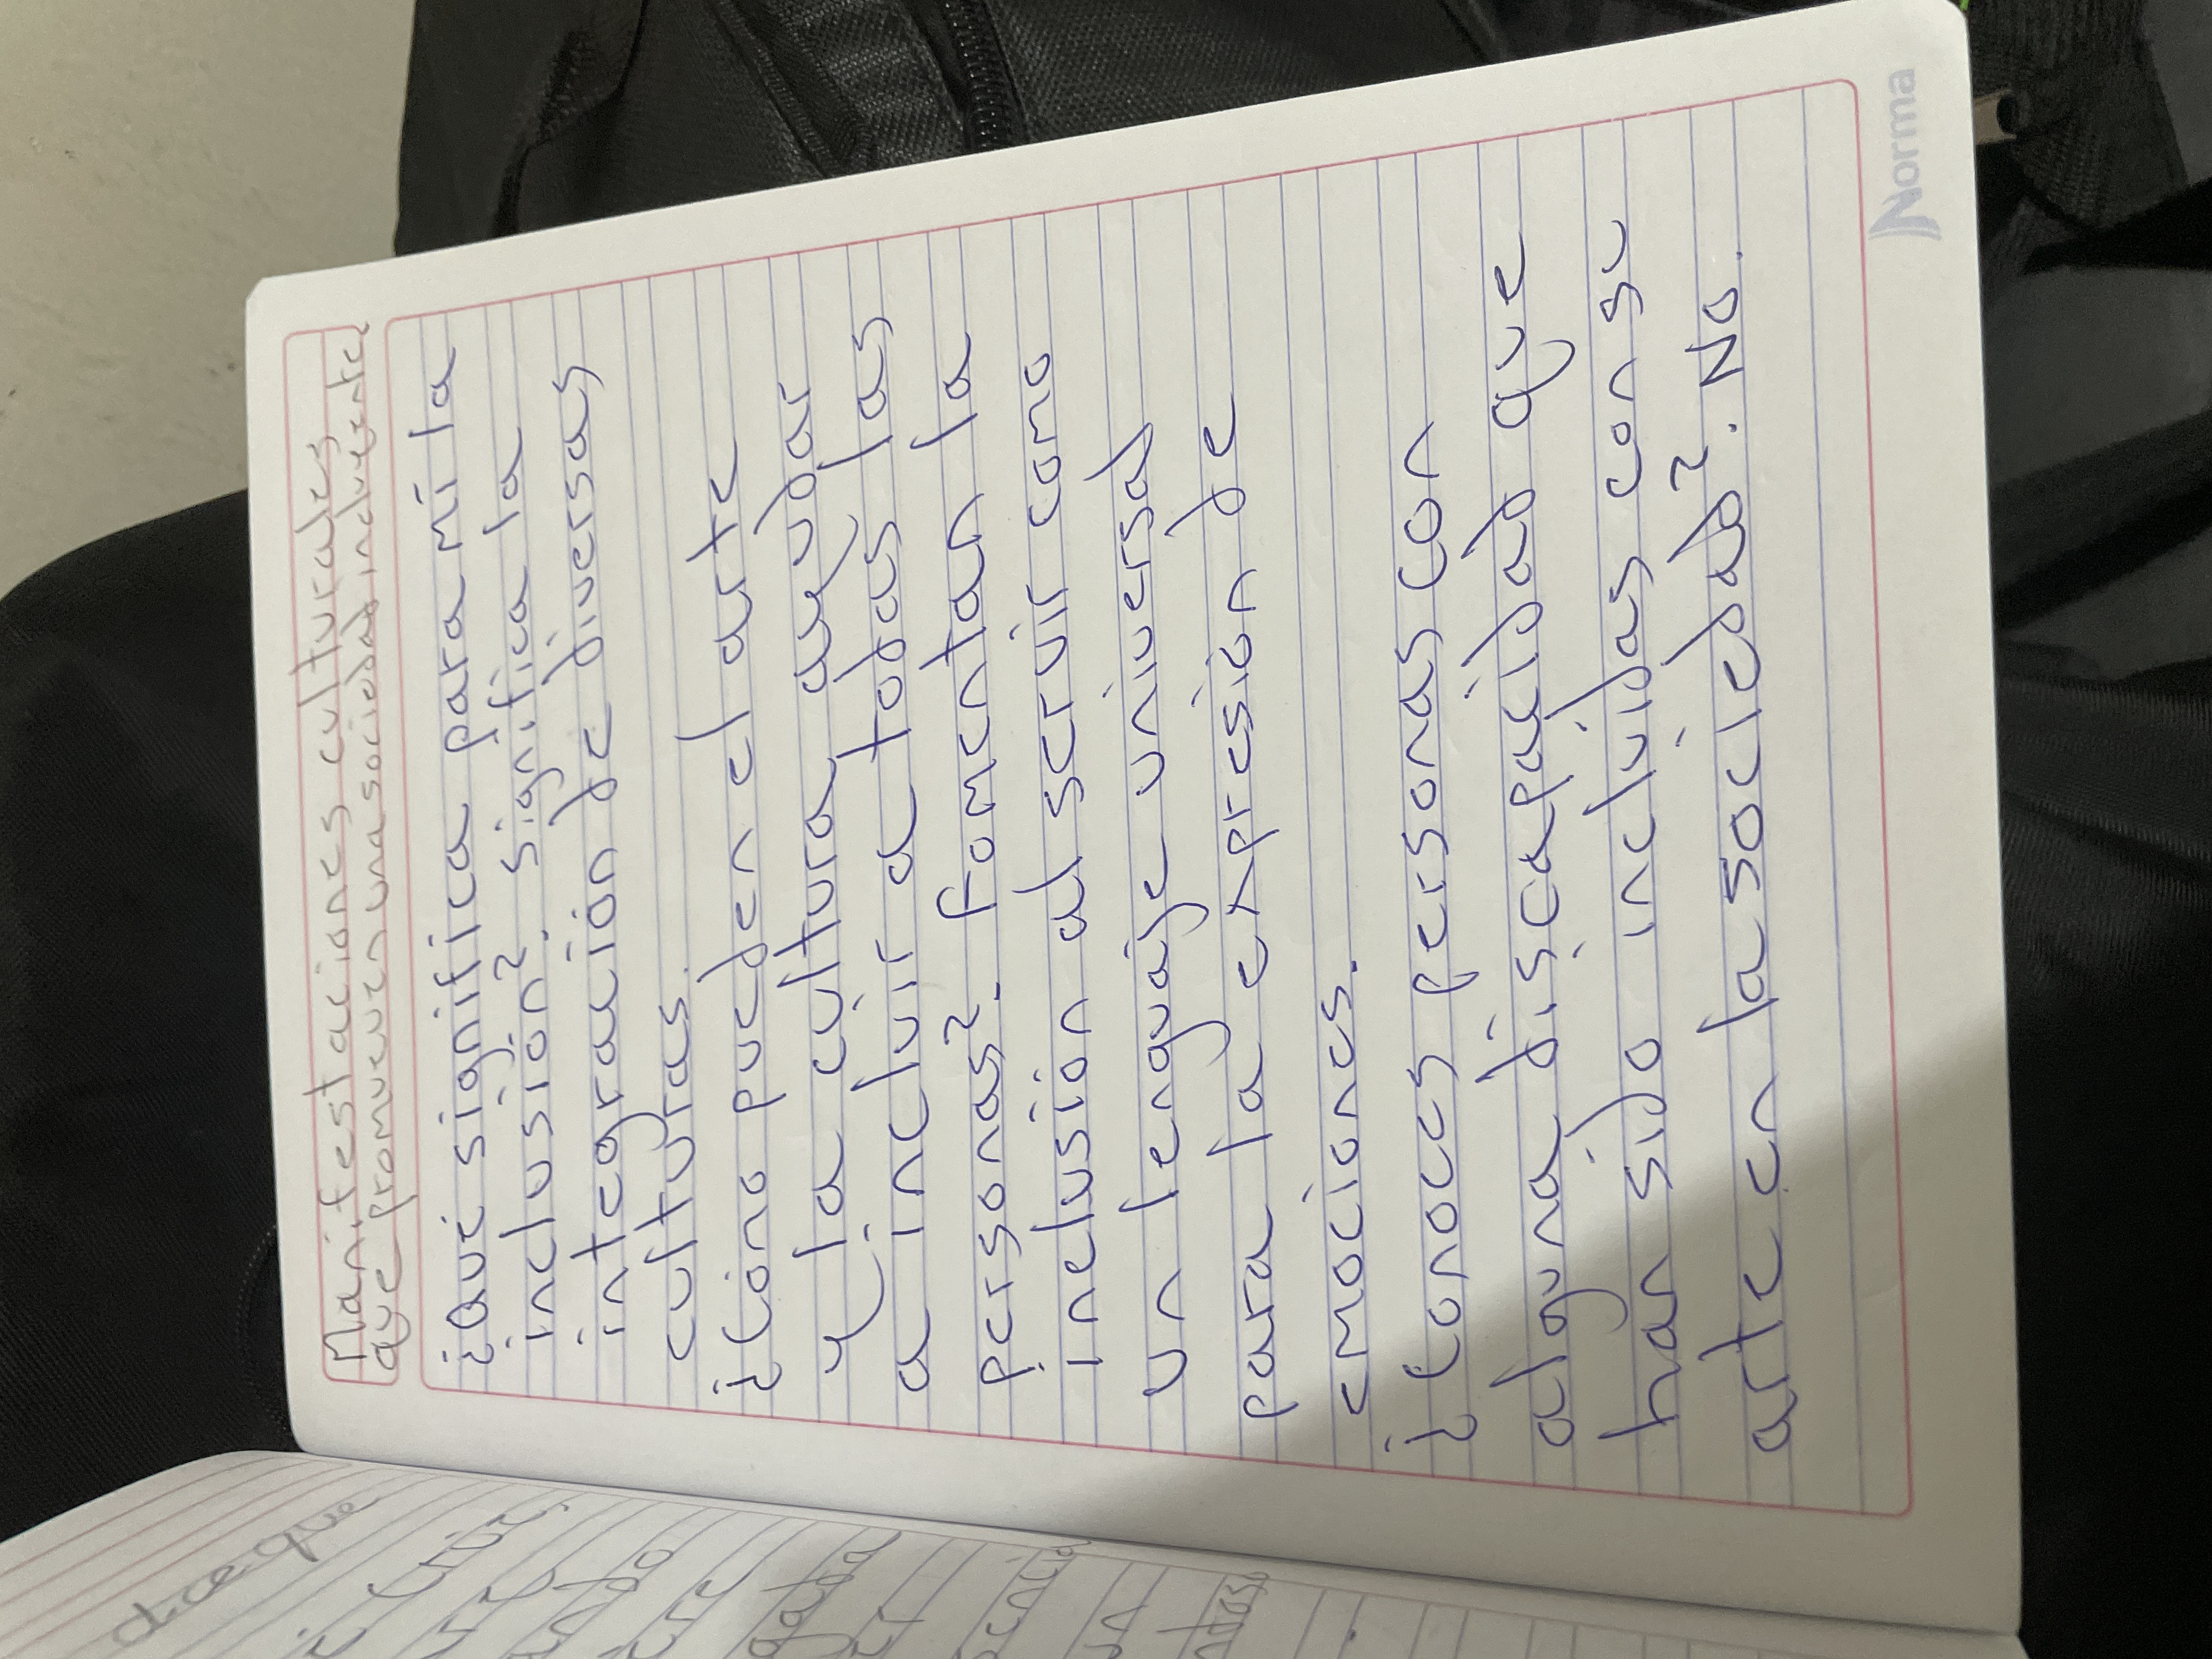 Manifestaciones culturales
que promueven una sociedad incluyente.
¿Qué significa para mí la
inclusión?. significa la
integración de diversas
culturas.
¿Cómo pueden el arte
y la cultura ayudar
a incluir a todas las
personas?. Fomentan la
inclusión al servir como
un lenguaje universal
para la expresión de
emociones.
¿Conoces personas con
alguna discapacidad que
han sido incluidas con su
arte en la sociedad?. No.
Norma